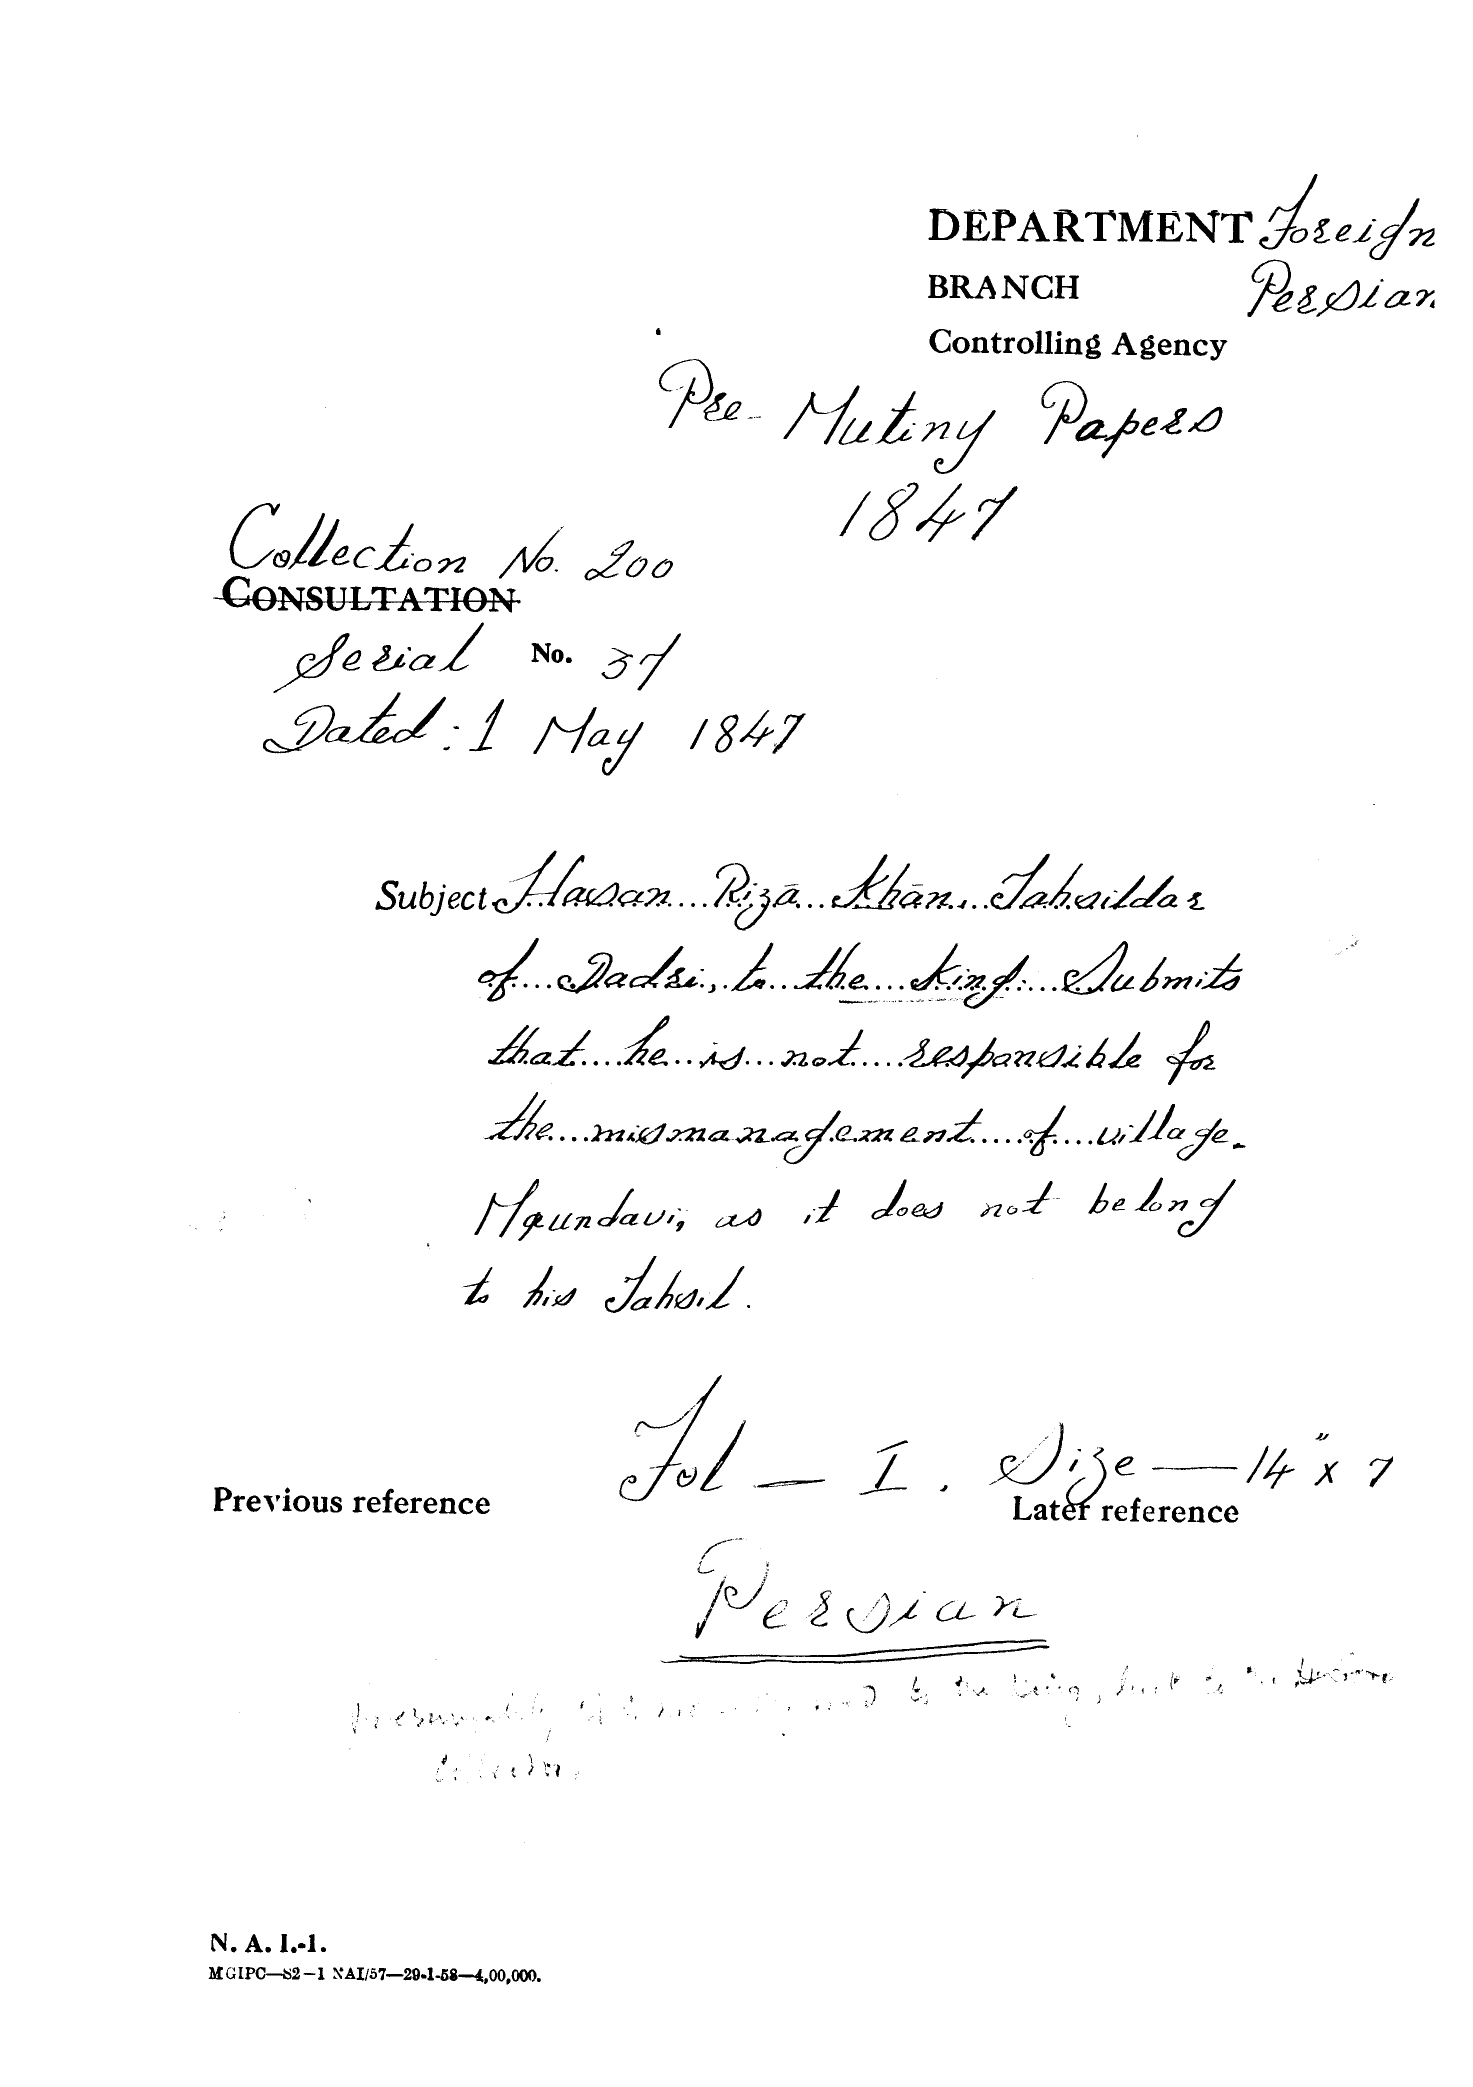 DEPARTMENT Foreign
BRANCH Persian
Controlling Agency
Pre-Mutiny Papers
1847
Collection No. 200
CONSULTATION
Serial No. 37
Dated : 1 May 1847
Subject Hasan Rizā Khān, Tahsildar
of Dadri, to the King. Submits
that he is not responsible for
the mismanagement of village
Maundavi, as it does not belong
to his Tahsil.
Fol — I. Size — 14" x 7
Previous reference
Later reference
Persian
Presumably to the King, but to the
N. A. I.-1.
MGIPC—S2—1 NAI/57—29-1-58—4,00,000.